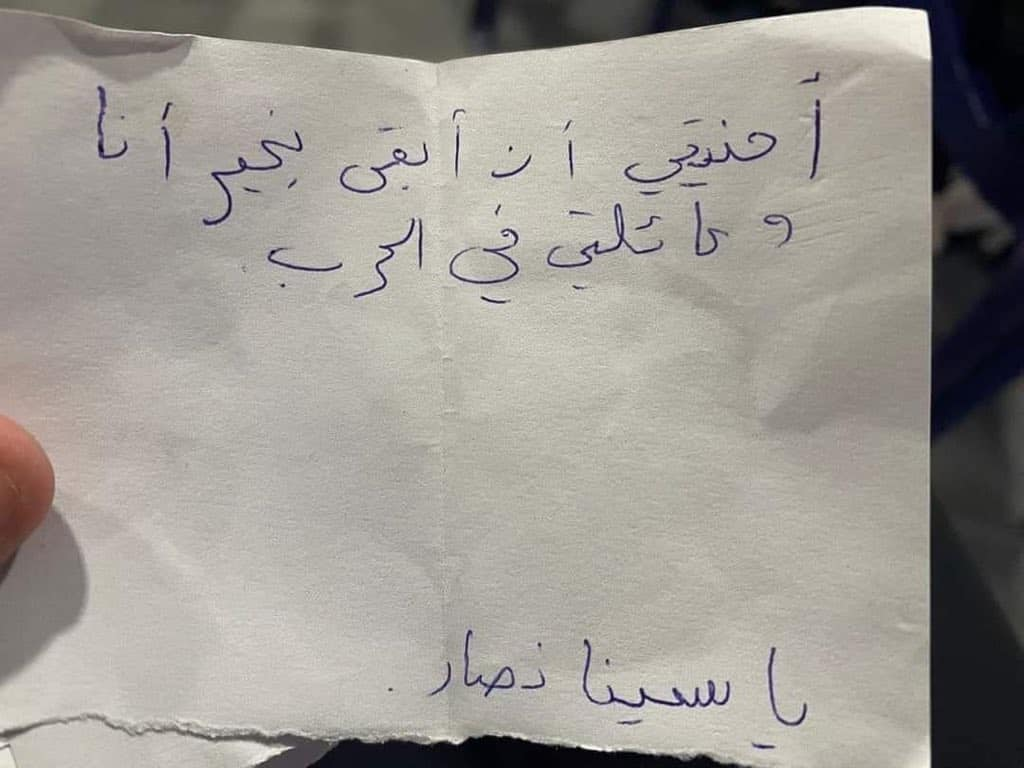 أمنيتي أن أبقى بخير أنا
وعائلتي في الحرب.
ياسينا نصار.